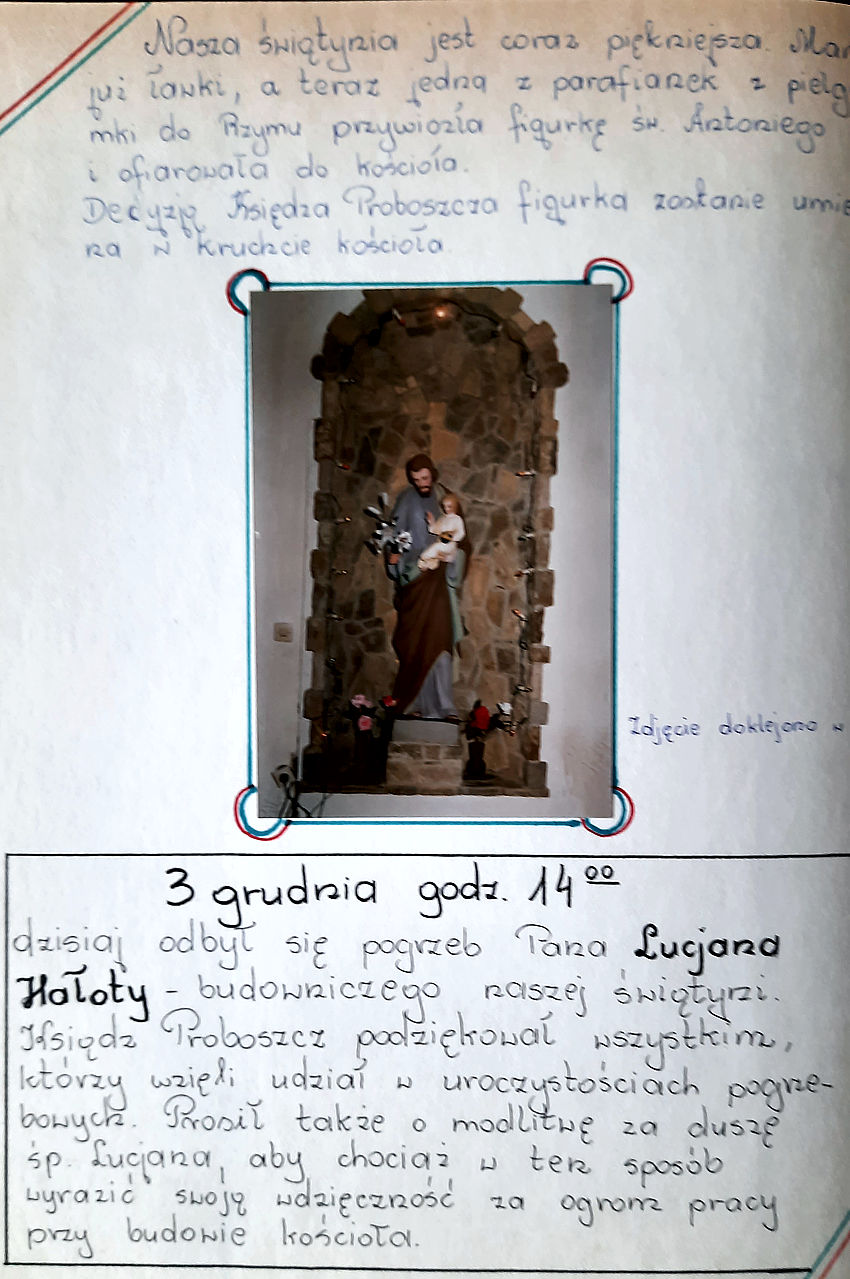 Nasza świątynia jest coraz piękniejsza. Mam
już ławki, a teraz jedna z parafianek z pielg
mki do Rzymu przywiozła figurkę św. Antoniego
i ofiarowała do kościoła.
Decyzją Księdza Proboszcza figurka zostanie umie
na w kruchcie kościoła.
Zdjęcie doklejono w
3 grudnia godz. 14 00
dzisiaj odbył się pogrzeb Pana Lucjana
Hałoty - budowniczego naszej świątyni.
Ksiądz Proboszcz podziękował wszystkim,
którzy wzięli udział w uroczystościach pogrze-
bowych. Prosił także o modlitwę za duszę
śp. Lucjana, aby chociaż w ten sposób
wyrazić swoją wdzięczność za ogrom pracy
przy budowie kościoła.